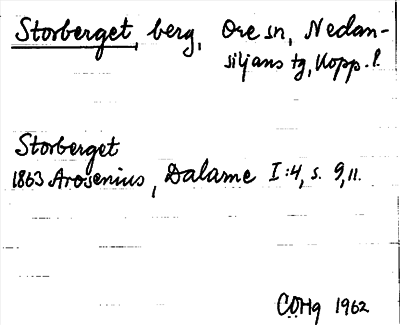 Storberget, berg, Ore sn, Nedan-
siljans tg, Kopp. l.
Storberget
1863 Arosenius, Dalarne I:4, s. 9, 11.
COHg 1962